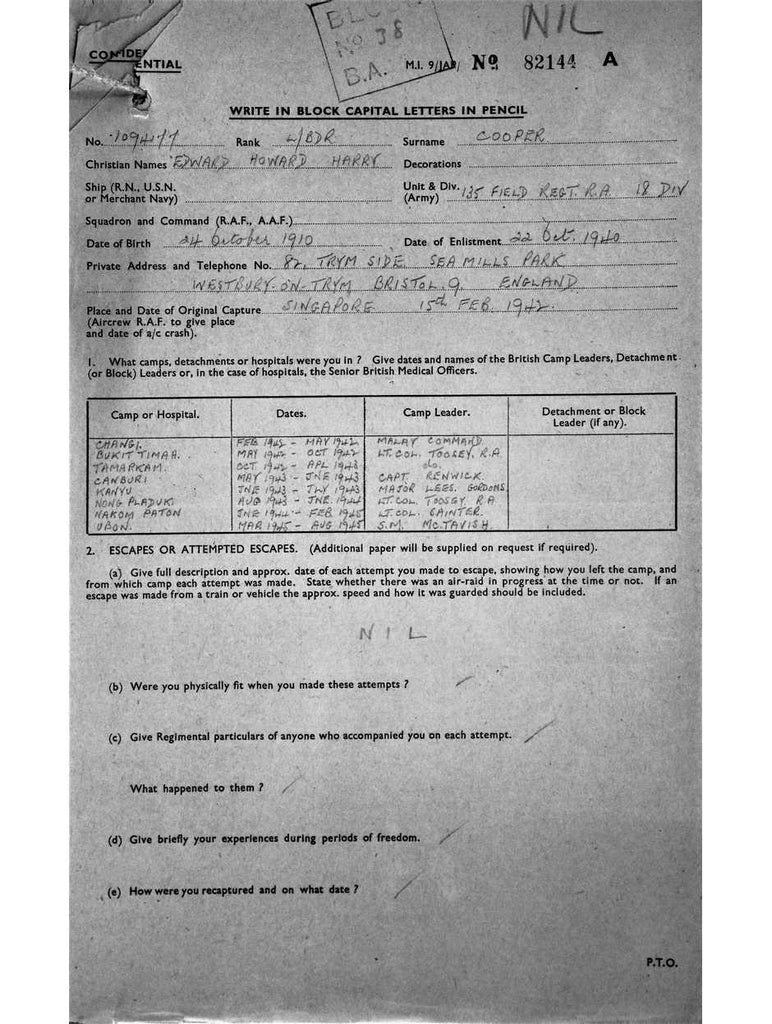 BLOCK
No 38
B.A.
NIL
CONFIDENTIAL
M.I. 9/JAP/ No 82144 A
WRITE IN BLOCK CAPITAL LETTERS IN PENCIL
No. Rank L/BDR Surname COOPER
Christian Names EDWARD HOWARD HARRY Decorations
Ship (R.N., U.S.N. or Merchant Navy) Unit & Div. (Army) 135 FIELD REGT. R.A. 18 DIV
Squadron and Command (R.A.F., A.A.F.)
Date of Birth 24 October 1910 Date of Enlistment 22 Oct. 1940
Private Address and Telephone No. 82, TRYM SIDE SEA MILLS PARK
WESTBURY-ON-TRYM BRISTOL. 9. ENGLAND
Place and Date of Original Capture SINGAPORE 15th FEB. 1942.
(Aircrew R.A.F. to give place
and date of a/c crash).
1. What camps, detachments or hospitals were you in ? Give dates and names of the British Camp Leaders, Detachment
(or Block) Leaders or, in the case of hospitals, the Senior British Medical Officers.
Camp or Hospital. Dates. Camp Leader. Detachment or Block Leader (if any).
CHANGI. FEB 1942 - MAY 1942 MALAY COMMAND
BUKIT TIMAH. MAY 1942 - OCT 1942 LT. COL. TOOSEY. R.A
TAMARKAM. OCT 1942 - APL 1943 do.
CANBURI MAY 1943 - JNE 1943 CAPT. RENWICK.
KANYU JNE 1943 - JLY 1943 MAJOR LEES. GORDONS
NONG PLADUK AUG 1943 - JNE. 1944 LT. COL. TOOSEY R.A
NAKOM PATON JNE 1944 - FEB 1945 LT. COL. SAINTER.
UBON. MAR 1945 - AUG 1945 S.M. McTAVISH.
2. ESCAPES OR ATTEMPTED ESCAPES. (Additional paper will be supplied on request if required).
(a) Give full description and approx. date of each attempt you made to escape, showing how you left the camp, and
from which camp each attempt was made. State whether there was an air-raid in progress at the time or not. If an
escape was made from a train or vehicle the approx. speed and how it was guarded should be included.
NIL
(b) Were you physically fit when you made these attempts ?
(c) Give Regimental particulars of anyone who accompanied you on each attempt.
What happened to them ?
(d) Give briefly your experiences during periods of freedom.
(e) How were you recaptured and on what date ?
P.T.O.